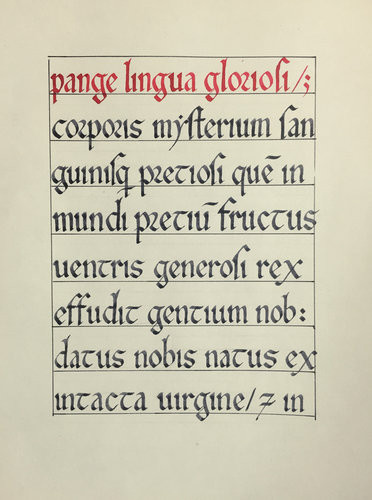 pange lingua glorioſi/;
corporis myſterium ſan
guinisꝗ pretiosi quē in
mundi pretiū fructus
uentris generoſi rex
effudit gentium nob:
datus nobis natus ex
intacta uirgine/⁊ in